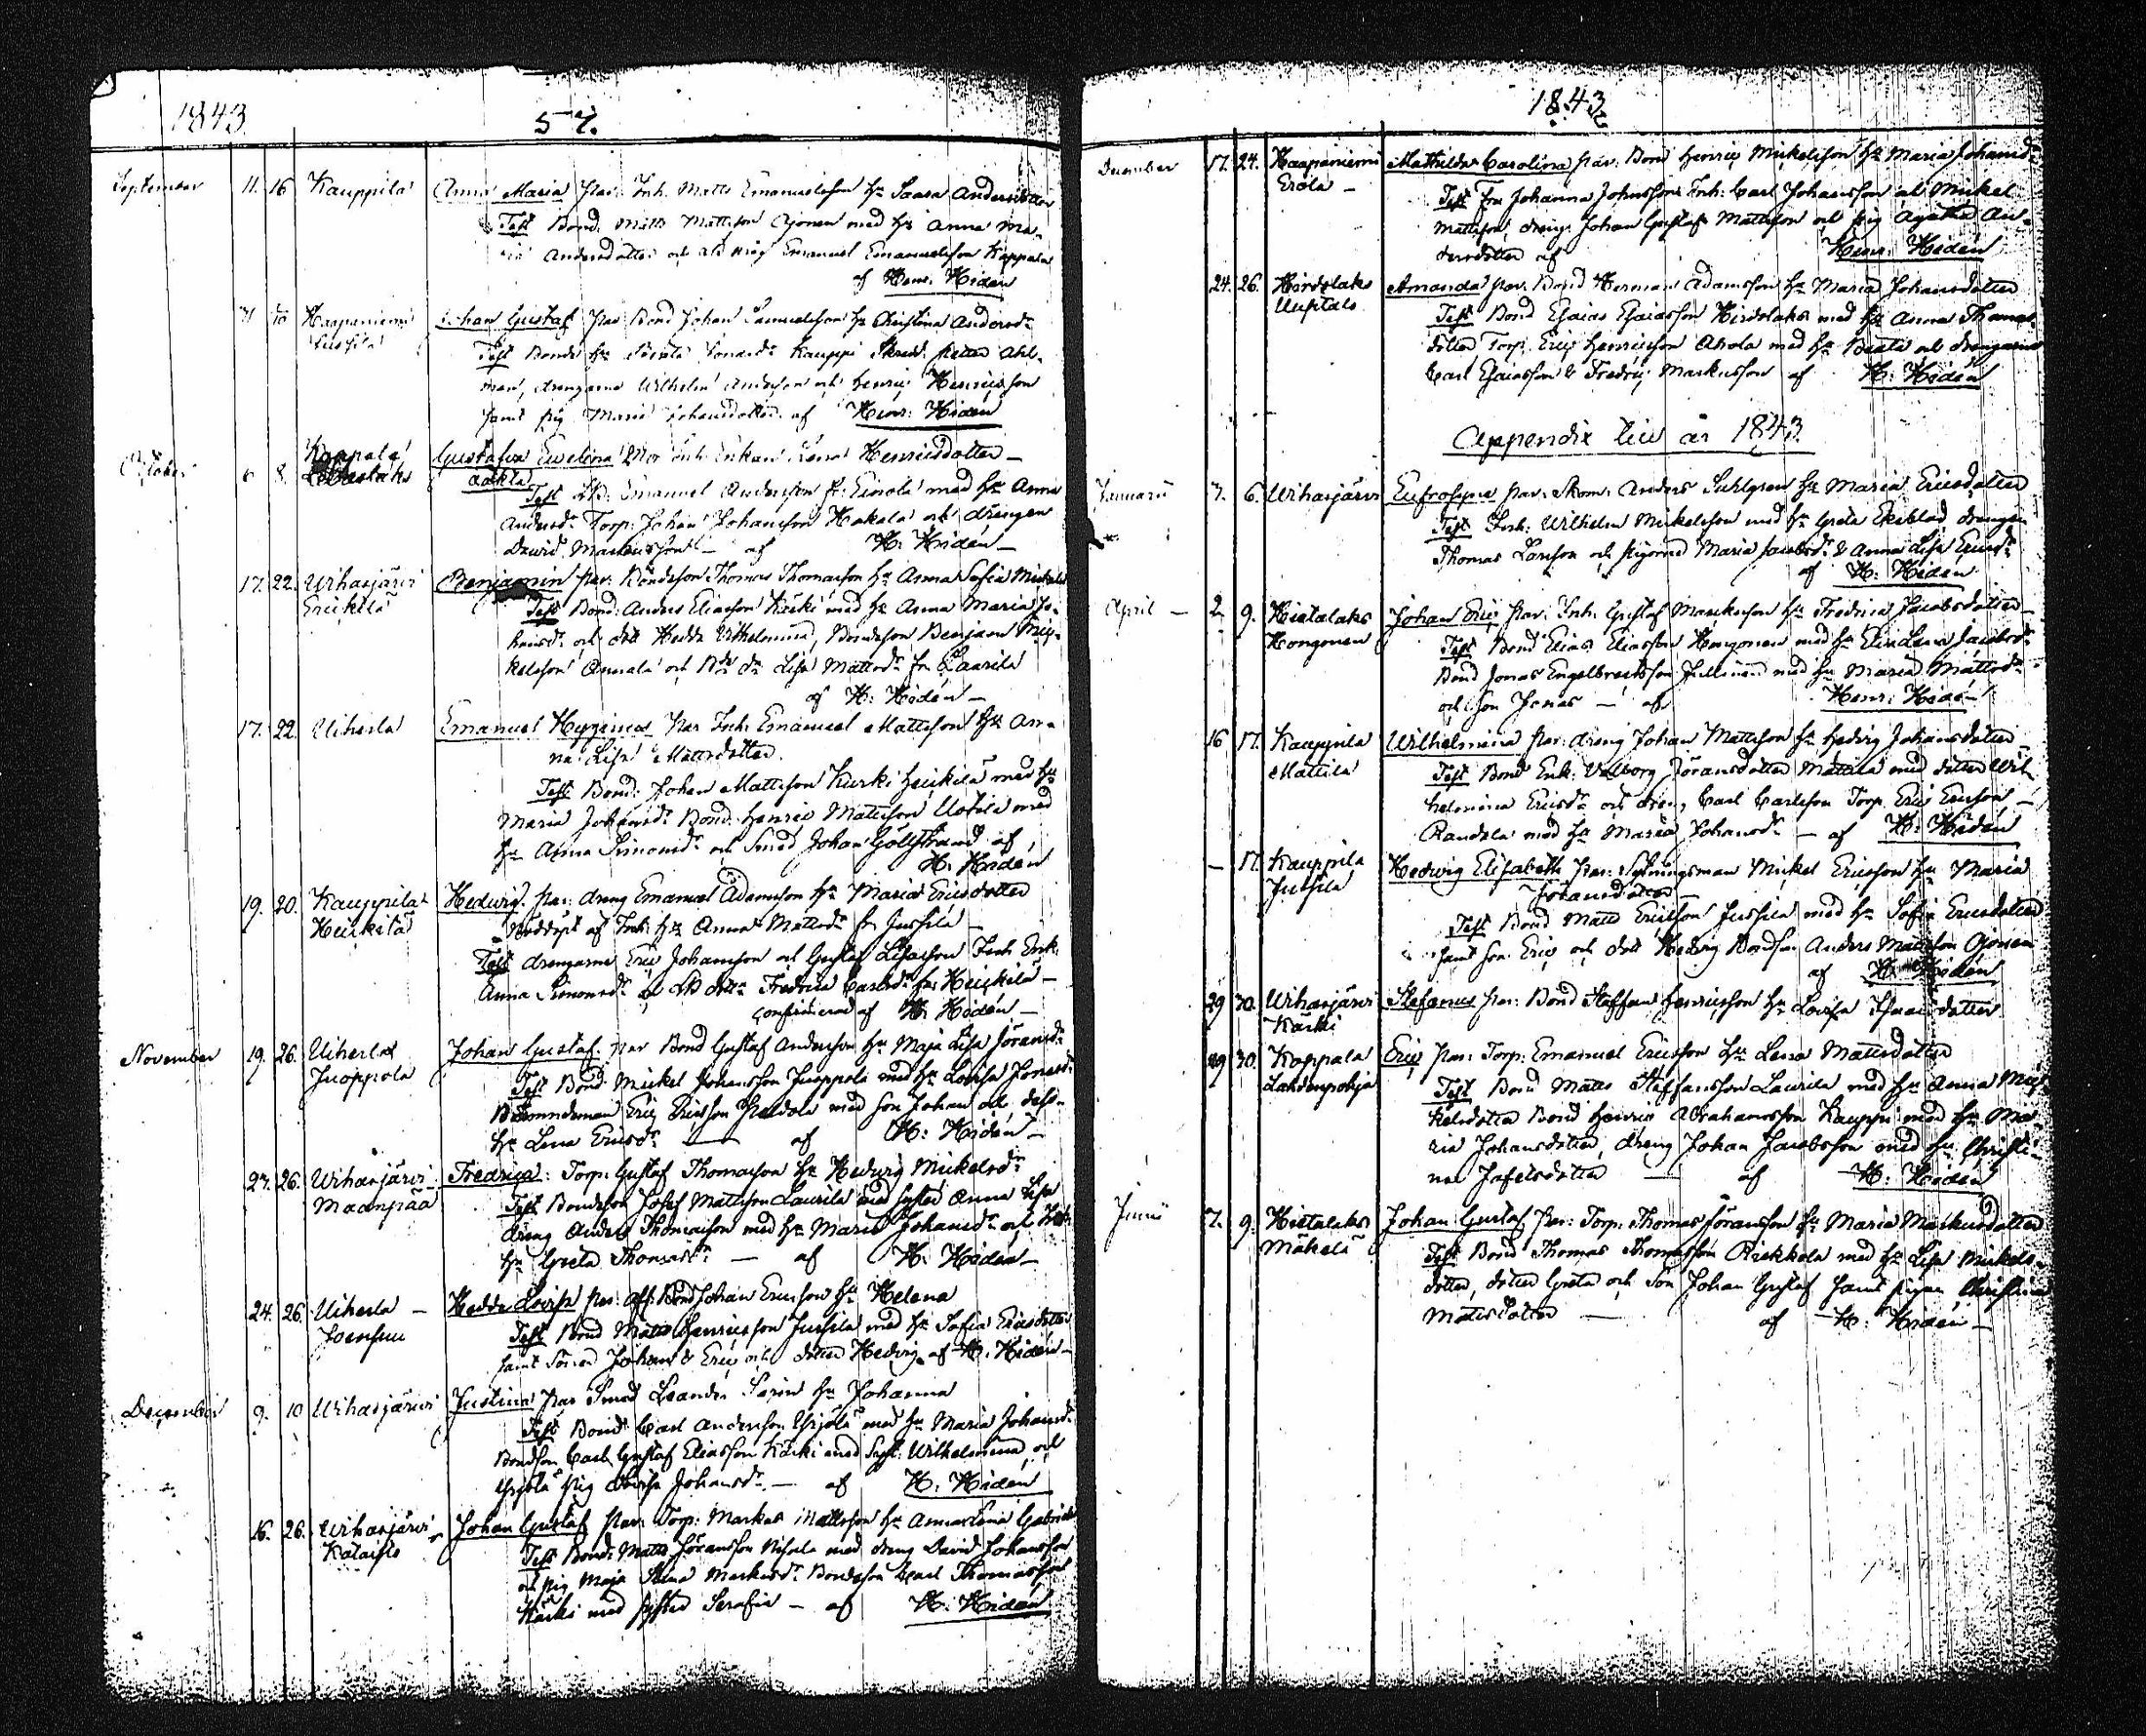 1843
57.
September 11. 16 Kauppila Anna Maria par: Inh. Matts Emanuelsson hu Saara Andersdotter
Test Bond. Matts Mattsson Ojonen med hu Anna Ma-
ria Andersdotter och Emanuel Emanuelsson Koppala
af Henr: Hidén
Haapaniemi Johan Gustaf par Bond Johan Samuelsson hu Christina Andersdr
Jussila Test Bonde hu Kauppi Petter Ahl-
man, drengarne Wilhelm Andersson och Henric Henricsson
samt pig Maria Johansdotter af Henr: Hidén
October 6 8. Koppala Gustafva Ewelina Mor Inh. Enkan Lena Henricsdotter —
oäkta
Test Emanuel Andersson fr: Eerola med hu Anna
Andersdr Torp: Johan Johansson Hakala och drengen
David Markusson — af H: Hidén —
17. 22. Uiharjärvi Benjamin par: Bondeson Thomas Thomasson hu Anna Sofia Mickelsd
Erickilä Test Bond: Anders Eliasson Kärki med hu Anna Maria Jo-
hansdr och dotr Hedda Vilhelmina, Bondeson Benjam Mic-
kelsson Annala och Lisa Mattsdr fr Laurila
af H: Hidén —
17. 22. Uiherla Emanuel Hyginus par Inh: Emanuel Mattsson hu An-
na Lisa Mattsdotter.
Test Bond: Johan Mattsson Kurki Heikilä med hu
Maria Johansdr Bond: Henric Mattsson Uotila med
hu Anna Simonsdr och Smed Johan Göllstrand af
H: Hidén
19. 20. Kauppila Hedwig. par: dreng Emanuel Adamsson hu Maria Ericsdotter
Heikilä Nöddöpt af Inh: hu Anna Mattsdr fr Jussila —
Test drengarne Eric Johansson och Gustaf Inh: Enk:
Anna Simonsdr Fredrica Carlsdr fr: Heickilä —
confirmerad af H: Hidén —
November 19. 26. Uiherla Johan Gustaf. par Bond Gustaf Andersson hu Maja Lisa Jöransdr
Juoppola Test Bond Mickel Johansson Juoppola med hu Lovisa Jonasdr
Eric Ericsson med son Johan och dess
hu Lena Ericsdr — af H: Hidén —
23. 26. Uiharjärvi Fredrica: Torp: Gustaf Thomasson hu Hedwig Mickelsdr
Maanpää Test Bondeson Josef Mattsson Laurila med syster Anna Lisa
dreng Anders Thomasson med hu Maria Johansdr och
hu Greta Thomasdr — af H: Hidén —
24. 26. Uiherla — Hedda Lovisa par: Aff. Bond Johan Ericsson hu Helena
Joensuu Test Bond Matts Henricsson Jussila med hu Sofia Ericsdotter
samt Söner Johan & Eric och dotter Hedwig af H: Hidén —
December 9. 10 Uiharjärvi Justina par Smed Leander hu Johanna
Test Bond Carl Andersson Yrjölä med hu Maria Johansdr
Bondson Carl Gustaf Eliasson Kärki med Syst: Wilhelmina och
Yrjölä pig Lovisa Johansdr — af H: Hidén
16. 26. Uiharjärvi Johan Gustaf par: Torp: Markus Mattsson hu Annastina Gabrielsd
Kataisto Test Bond: Matts Jöransson med dreng David Johansson
och pig Maja Stina Markusdr Bondeson Carl Thomasson
Kärki med syster Serafia — af H: Hidén
1843
December 17. 24. Haapaniemi Mathilda Carolina par: Bond Henric Mickelsson hu Maria Johansdr
Erola — Test Fru Johanna Johnsson Inh: Carl Johansson och Mickel
Mattsson, dreng Johan Gustaf Mattsson och pig Agatha An-
dersdotter af Henr: Hidén
24. 26. Hirdslaks Amanda par. Bond Herman Adamsson hu Maria Johansdotter
Uusitalo Test Bond Esaias Esaiasson Hirdslaks med hu Anna Thomas-
dotter Torp: Eric Henricsson Ahola med hu Beata och drengarne
Carl Esaiasson & Fredric Markusson af H: Hidén
Appendix till år 1843.
Januari 3. 6. Uiharjärvi Eufrosyne par: Skom: Anders Sahlgren hu Maria Ericsdotter
Test Inh: Wilhelm Mickelsson med hu Greta Ekeblad drengen
Thomas Larsson och pigorna Maria Jacobsdr & Anna Lisa Ericsdr
af H: Hidén
April — 2. 9. Hietalaks Johan Eric par: Inh: Gustaf Marcksson hu Fredrica Jacobsdotter —
Hongonen Test Bond Elias Eliasson Hongonen med hu Lena Jacobsdr
Bond Jonas Engelbrektsson med hu Maria Mattsdr
och son Jonas — af Henr: Hidén
16 17. Kauppila Wilhelmina par: dreng Johan Mattsson hu Hedvig Johansdotter
Mattila Test Bond Enk: Valborg Jöransdotter Mattila med dotter Wil-
helmina Ericsdr och dreng Carl Carlsson Torp: Eric Ericsson —
Randela med hu Maria Johansdr — af H: Hidén
— 17. Kauppila Hedwig Elisabeth par: Mickel Ericsson hu Maria
Jussila Johansdotter —
Test Bond Matts Ericsson Jussila med hu Sofia Ericsdotter
samt son Eric och dotr Hedvig Bondson Anders Mattsson Ojonen
af H: Hidén
29 30. Uiharjärvi Stefanus par: Bond Staffan Henricsson hu Lovisa dotter
Kärki
29 30. Koppala Eric par: Torp: Emanuel Ericsson hu Lena Mattsdotter
Lahdenpohja Test Bond Matts Staffansson Laurila med hu Anna Mic-
kelsdotter Bond Henric Abrahamsson Kauppi med hu Ma-
ria Johansdotter, dreng Johan Jacobsson med hu Christi-
na dotter — af H: Hidén
Junii 7. 9. Hietalaks Johan Gustaf par: Torp: Thomas Jöransson hu Maria Markusdotter
Mäkelä Test Bond Thomas Thomasson Riekkola med hu Lisa Mickels-
dotter, dotter Greta och Son Johan Gustaf samt pigan Christina
Mattsdotter — af H: Hidén —